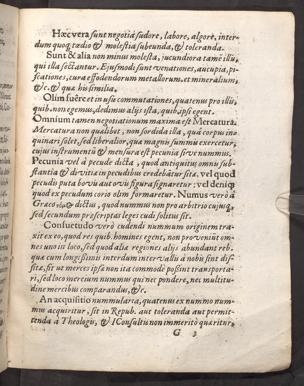 Hæc vera sunt negotia sudore, labore, algore, inter-
dum quoq; tædio & molestia subeunda, & toleranda.
Sunt & alia non minus molesta, jucundiora tamē illi,
qui illa sectātur. Ejusmodi sunt venationes, aucupia, pi-
scationes, cura effodendorum metallorum, et mineralium,
& c. & quæ his similia.
Olim fuēre et in usu commutationes, quatenus pro illis,
quib. non egemus, dedimus aliis ista, quib. ipsi egent.
Omnium tamen negotiationum maxima est Mercatura.
Mercatura non qualibet, non sordida illa, quæ corpus in-
quinari solet, sed liberalior, quæ magnis summis exercetur,
cujus instrumentū & mensura est pecunia sive nummus.
Pecunia vel à pecude dicta, quod antiquitus omnis sub-
stantia & divitia in pecudibus credebātur sitæ. vel quod
pecudis puta bovis aut ovis figura signaretur; vel deniq;
quod ex pecudum corio olim formaretur. Numus verò à
Græco dictus, quod nummus non pro arbitrio cujusq;
sed secundum præscriptas leges cudi solitus sit.
Consuetudo verò cudendi nummum originem tra-
xit ex eo, quod res quib. homines egent, non proveniūt om-
nes uno in loco, sed quod alia regiones aliis abundant reb.
quæ cum longissimis interdum intervallis à nobis sint dis-
sitæ, fit ut merces ipsæ non ita commodè possint transporta-
ri, sed loco mercium nummus qui net pondere, nec multitu-
dine mercibus comparandus, &c.
An acquisitio nummularia, quatenus ex nummo num-
mus acquiritur, sit in Repub. aut toleranda aut permit-
tenda à Theologis, & ICsultis non immeritò quæritur,
G 3